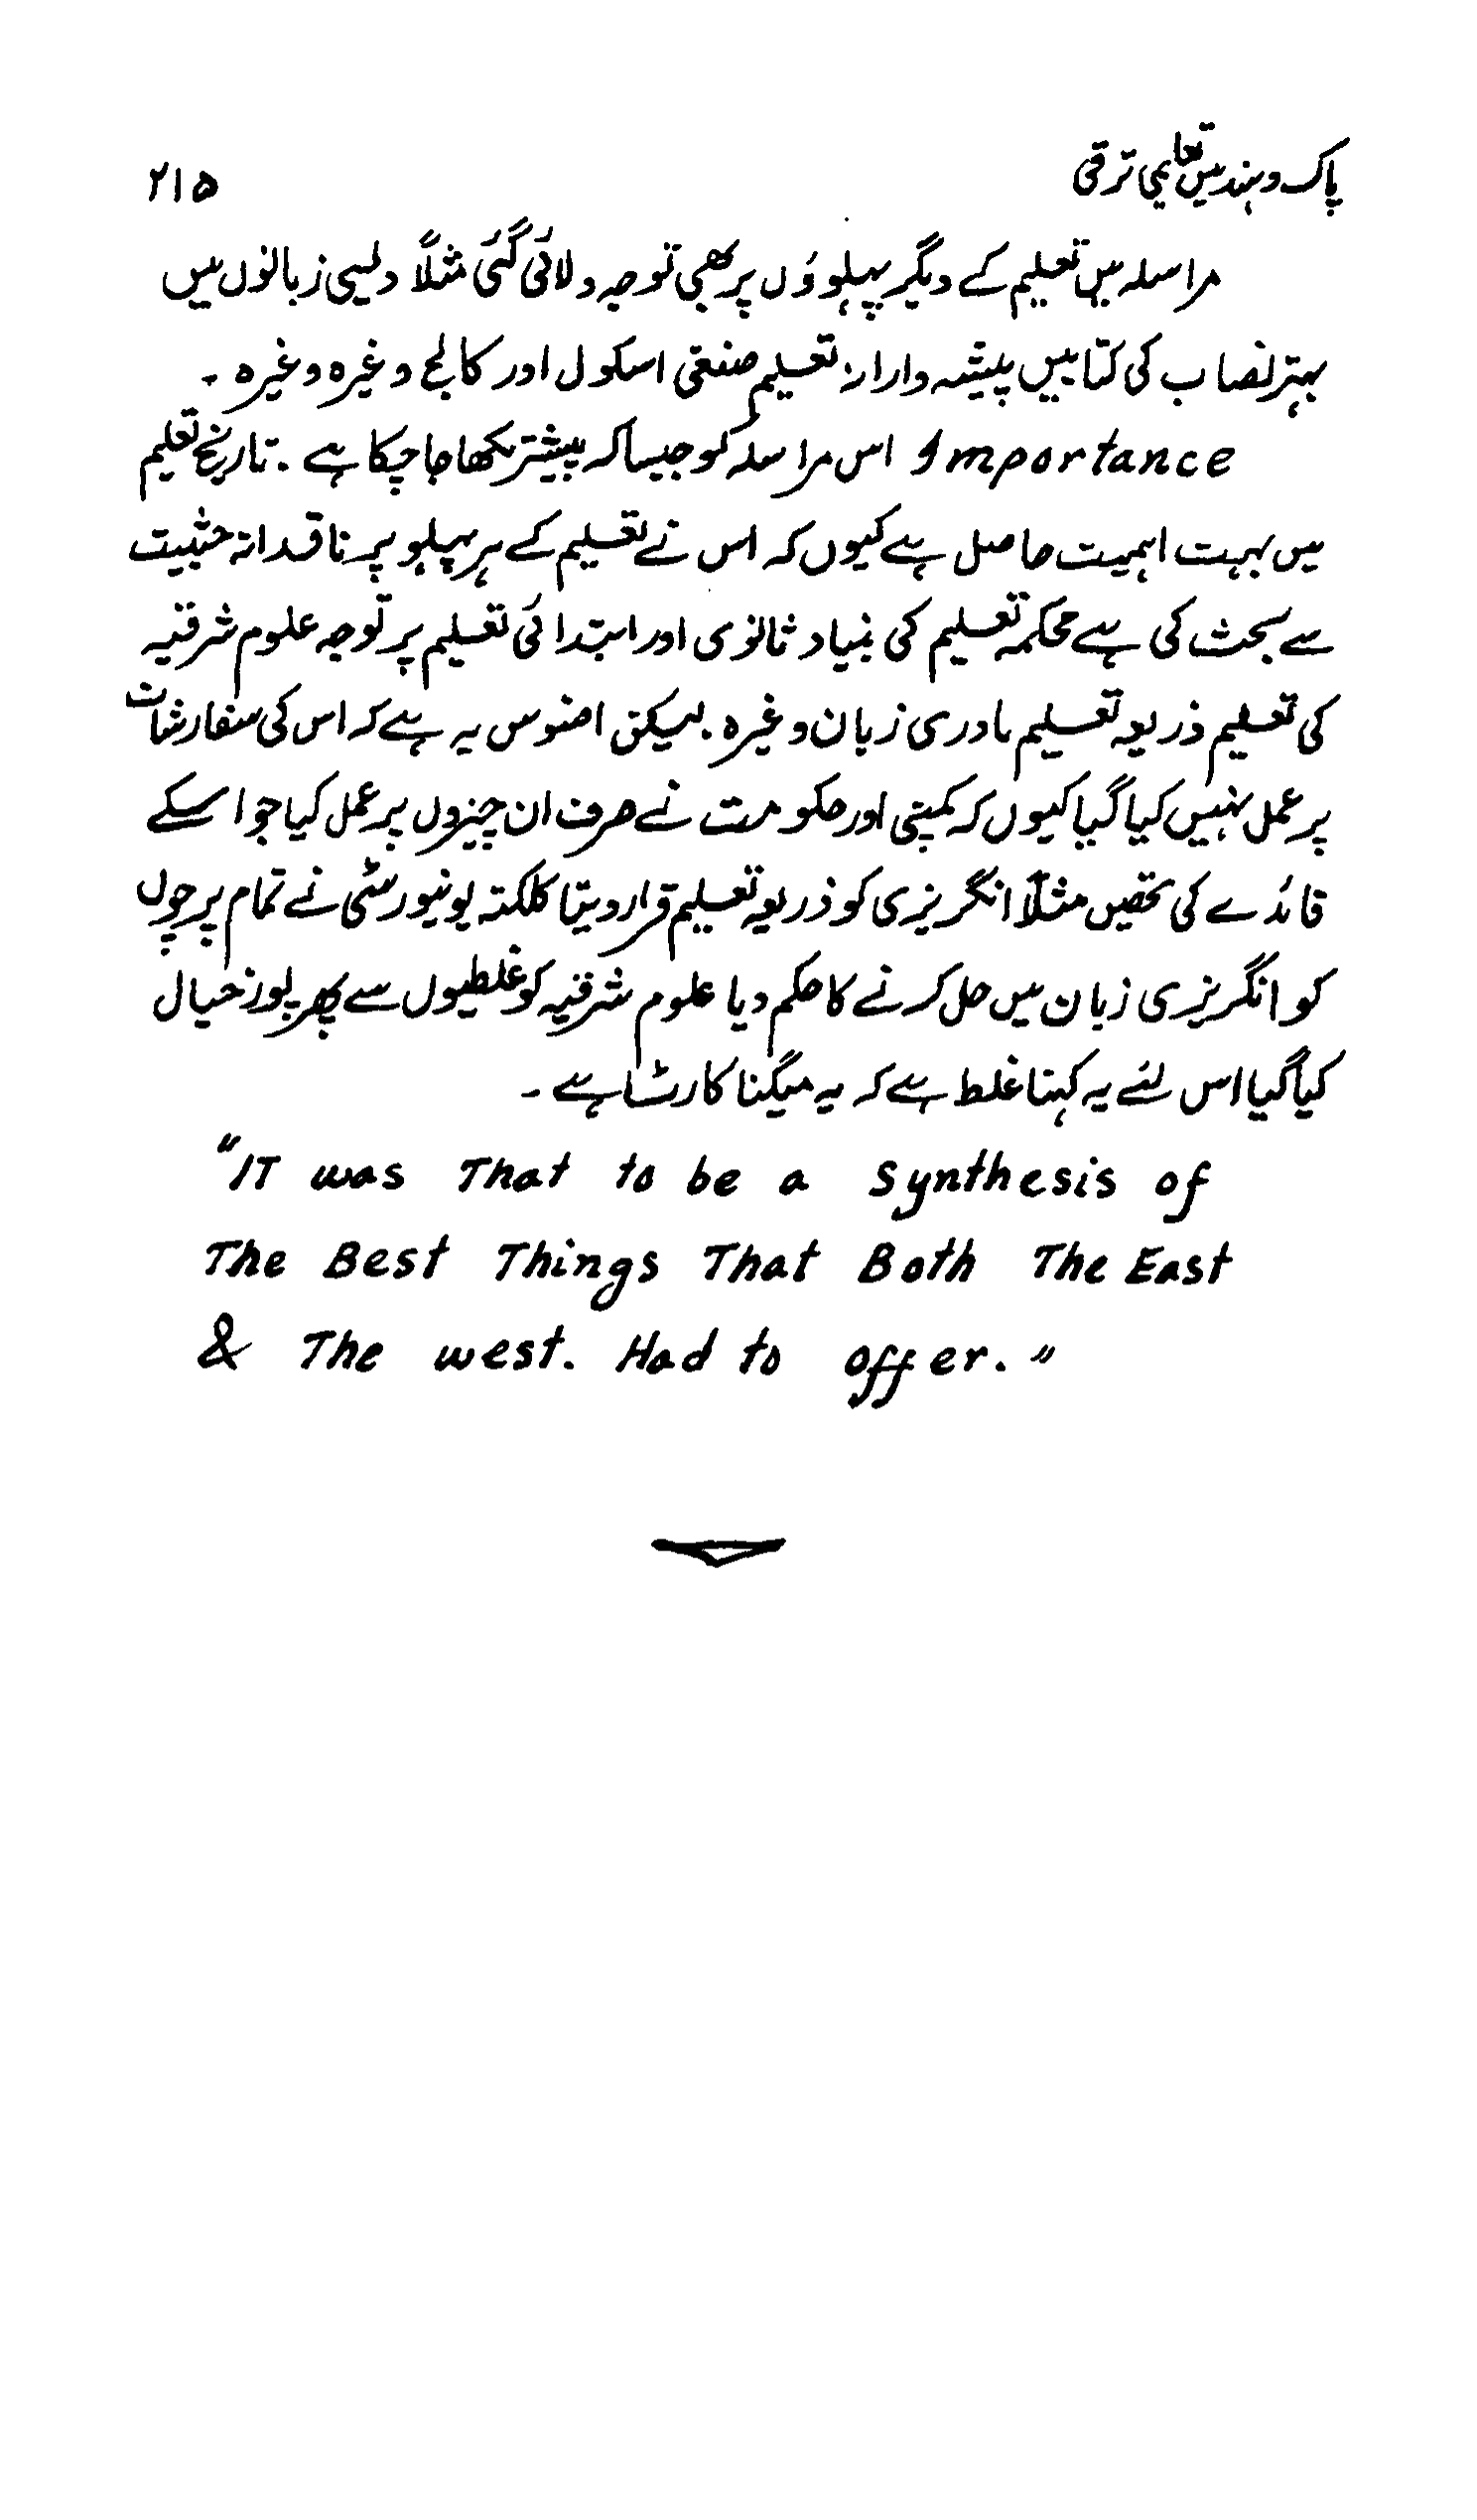 پاک و ہند میں تعلیمی ترقی
۲۱۵
مراسلہ میں تعلیم کے دیگر پہلوؤں پر بھی توجہ دلائی گئی مثلاً دلیسی زبانوں میں
بہتر نصاب کی کتابیں پیشہ وارانہ تعلیم صنعتی اسکول اور کالج وغیرہ وغیرہ ۔
Importance اس مراسلہ کو جیسا کہ پیشتر لکھا جا چکا ہے ۔ تاریخ تعلیم
میں بہت اہمیت حاصل ہے کیوں کہ اس نے تعلیم کے ہر پہلو پر ناقدانہ حثیت
سے بحث کی ہے محکمہ تعلیم کی بنیاد ثانوی اور ابتدائی تعلیم پر توجہ علوم شرقیہ
کی تعلیم ذریعہ تعلیم مادری زبان وغیرہ ۔ لیکن افسوس یہ ہے کہ اس کی سفارشات
پر عمل نہیں کیا گیا کیوں کہ کمپنی اور حکومت نے صرف ان چیزوں پر عمل کیا جو اسکے
فائدے کی تھیں مثلاً انگریزی کو ذریعہ تعلیم قرار دیتا کلکتہ یونیورسٹی نے تمام پرچوں
کو انگریزی زبان میں حل کرنے کا حکم دیا علوم شرقیہ کو غلطیوں سے بھرپور خیال
کیا گیا اس لئے یہ کہنا غلط ہے کہ یہ میگنا کارٹا ہے ۔
"IT was That to be a synthesis of
The Best Things That Both The East
& The west. Had to offer."